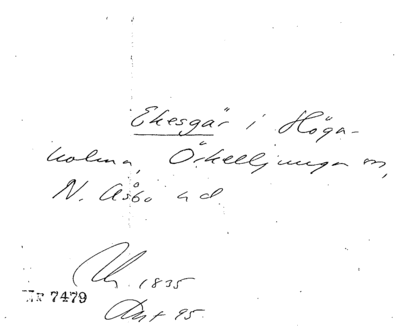 Ekesgär i Höga-
holma, Örkelljunga sn,
N. Åsbo hd
1835
Nr 7479
95.